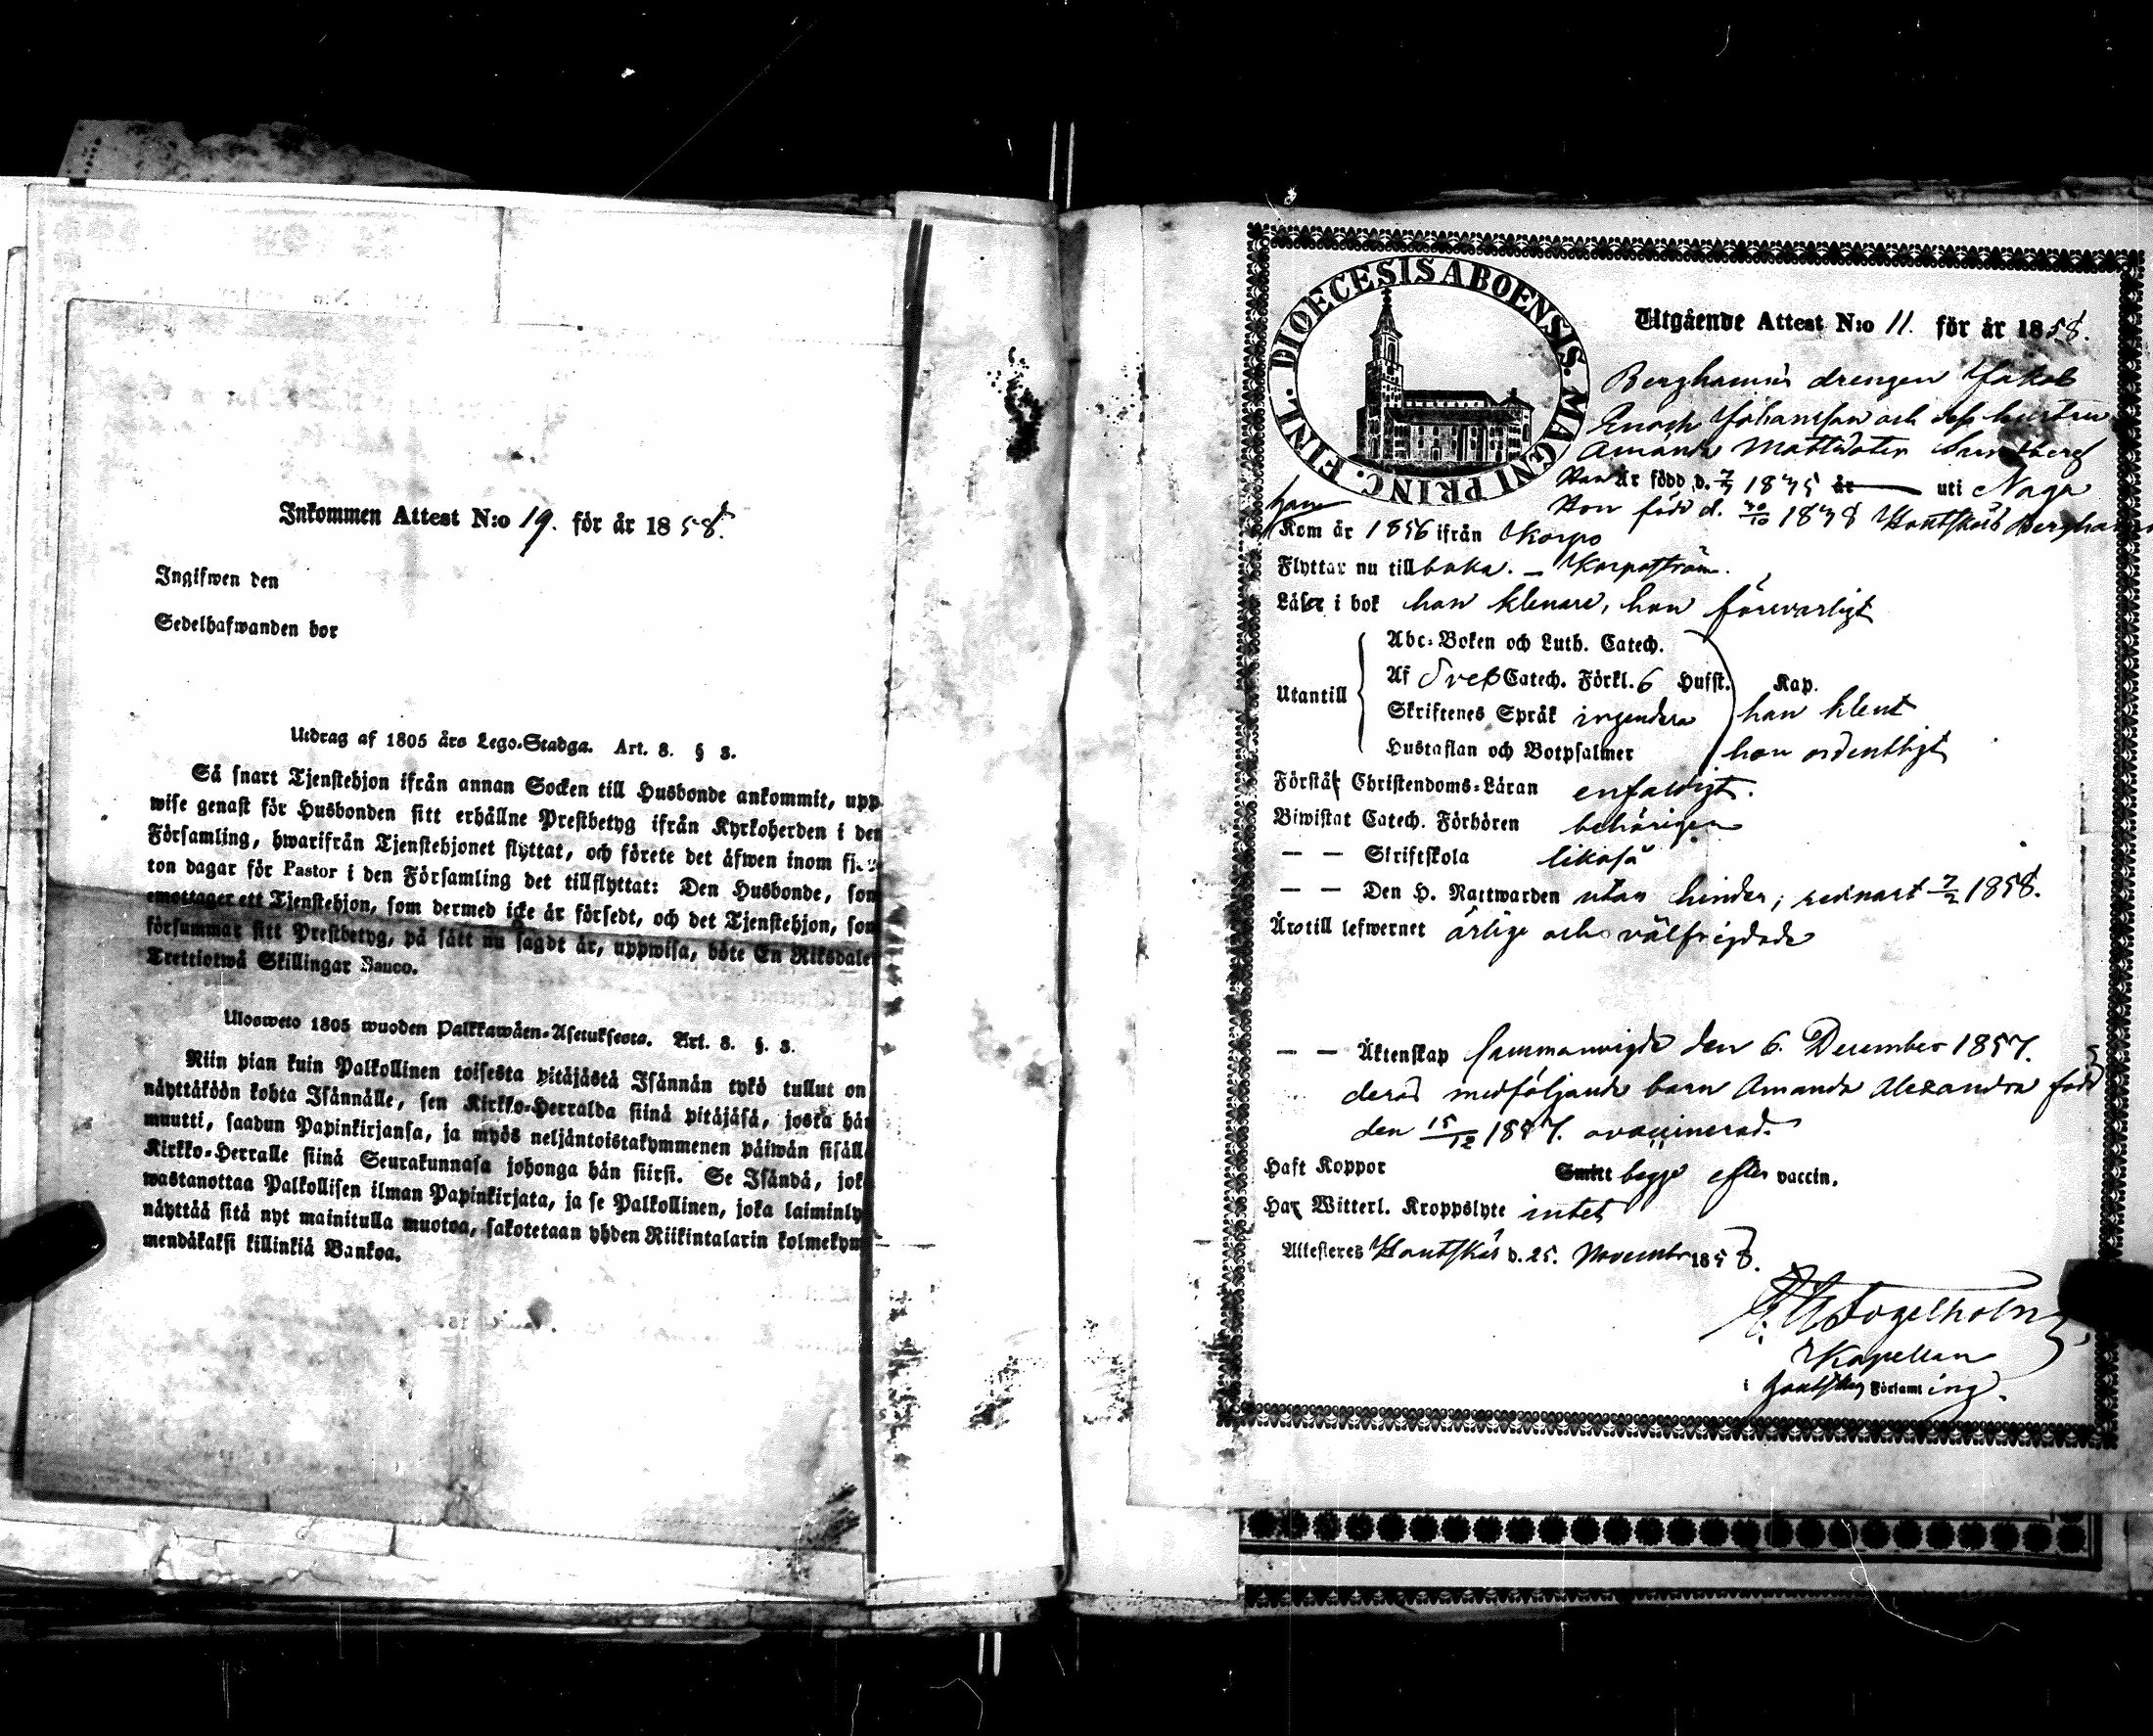 Inkommen Attest N:o 19. för år 1858.
Ingifwen den
Sedelhafwanden bor
Utdrag af 1805 års Lego-Stadga. Art. 8. § 3.
Så snart Tjenstehjon ifrån annan Socken till Husbonde ankommit, upp
wise genast för Husbonden sitt erhållne Prestbetyg ifrån Kyrkoherden i den
Församling, hwarifrån Tjenstehjonet flyttat, och förete det äfwen inom fj
ton dagar för Pastor i den Församling det tillflyttat: Den Husbonde, som
emottager ett Tjenstehjon, som dermed icke är försedt, och det Tjenstehjon, som
försummar sitt Prestbetyg, på sätt nu sagdt är, uppwisa, böte En Riksdaler
Trettiotwå Skillingar Banco.
Ulosweto 1805 wuoden Palkkawäen-Asetuksesta. Art. 8. §. 3.
Niin pian kuin Palkollinen toisesta pitäjästä Isännän tykö tullut on
näyttäköön kohta Isännälle, sen Kirkko-Herralda siinä pitäjäsä, josta hän
muutti, saadun Papinkirjansa, ja myös neljäntoistakymmenen päiwän sisäll
Kirkko-Herralle siinä Seurakunnasa johonga hän siirsi. Se Isändä, jok
wastanottaa Palkollisen ilman Papinkirjata, ja se Palkollinen, joka laiminly
näyttää sitä nyt mainitulla muotoa, sakotetaan yhden Riikintalarin kolmekym
mendäkaksi killinkiä Bankoa.
DIOECESIS ABOENSIS. MAGNI PRINC. FINL.
Utgående Attest N:o 11. för år 1858.
Berghamns drengen Jakob
Enoch Johansson och dess hustru
Amanda Mattsdoter Sundberg
Han är född d. 7/7 1835 år uti Nagu
Hon född d. 30/10 1838 Houtskärs Berghamn
han
Kom år 1856 ifrån Korpo
Flyttar nu tillbaka. – Korpoström.
Läser i bok han klenare, hon försvarligt
Utantill
Abc-Boken och Luth. Catech.
Af Sveb Catech. Förkl. 6 Hufst. Kap.
Skriftenes Språk ingendera han klent
Hustaflan och Botpsalmer hon ordentligt
Förstår Christendoms-Läran enfaldigt.
Biwistat Catech. Förhören behörigen
— — Skriftskola likaså
— — Den H. Nattwarden utan hinder, sednast 7/2 1858.
Äro till lefwernet ärlige och välfrejdade
— — Äktenskap sammanvigde den 6. December 1857.
deras medföljande barn Amanda Alexandra född
den 15/12 1857. ovaccinerad.
Haft Koppor Smitt begge efter vaccin.
Har Witterl. Kroppslyte intet
Attesteres Houtskär d. 25. November 1858.
Fogelholm
Kapellan
i Houtskär Församling.